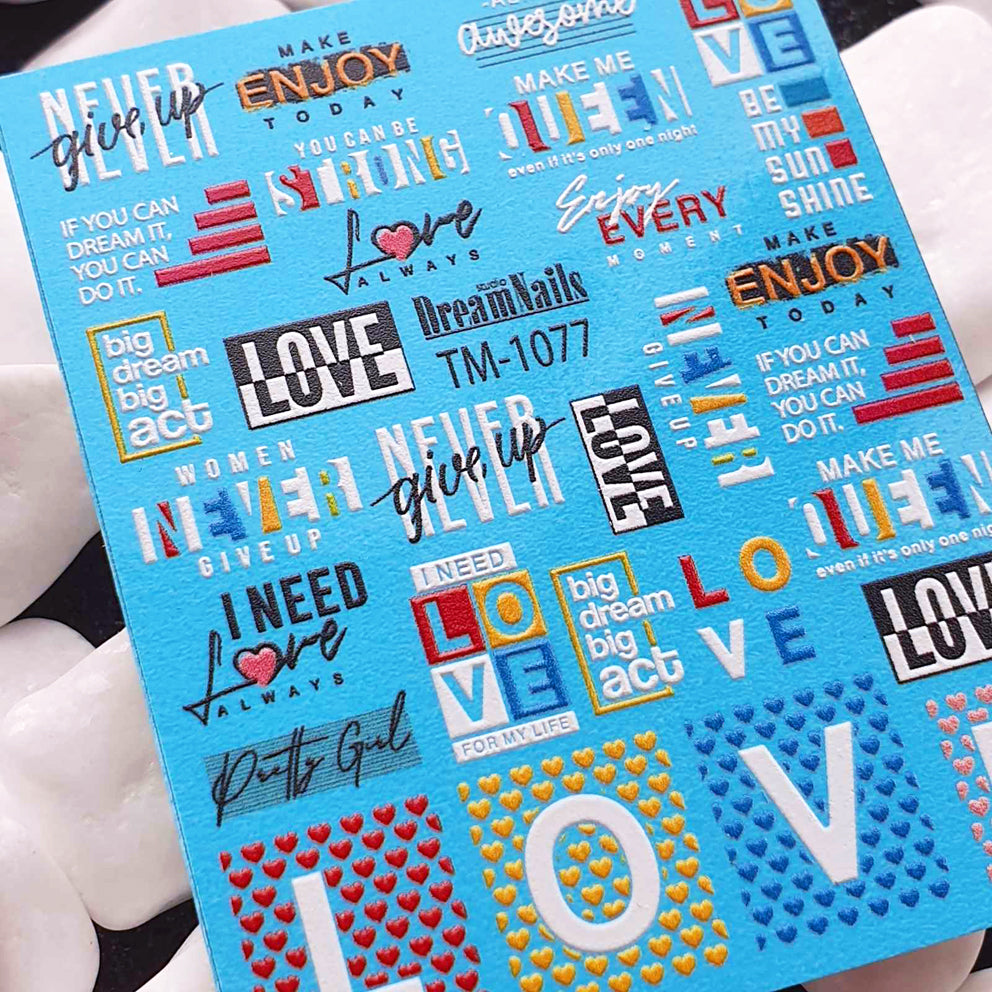 awesome
LO
VE
NEVER
give up
NEVER
MAKE
ENJOY
TODAY
MAKE ME
QUEEN
even if it's only one night
BE
MY
SUN
SHINE
YOU CAN BE
STRONG
IF YOU CAN
DREAM IT,
YOU CAN
DO IT.
Love
ALWAYS
Enjoy
EVERY
MOMENT
MAKE
ENJOY
TODAY
studio
DreamNails
TM-1077
big
dream
big
act
LOVE
NEVER
GIVE UP
IF YOU CAN
DREAM IT,
YOU CAN
DO IT.
WOMEN
NEVER
GIVE UP
NEVER
give up
NEVER
LOVE
MAKE ME
QUEEN
even if it's only one night
I NEED
Love
ALWAYS
I NEED
LO
VE
FOR MY LIFE
big
dream
big
act
LO
VE
LOVE
Pretty Girl
L
O
V